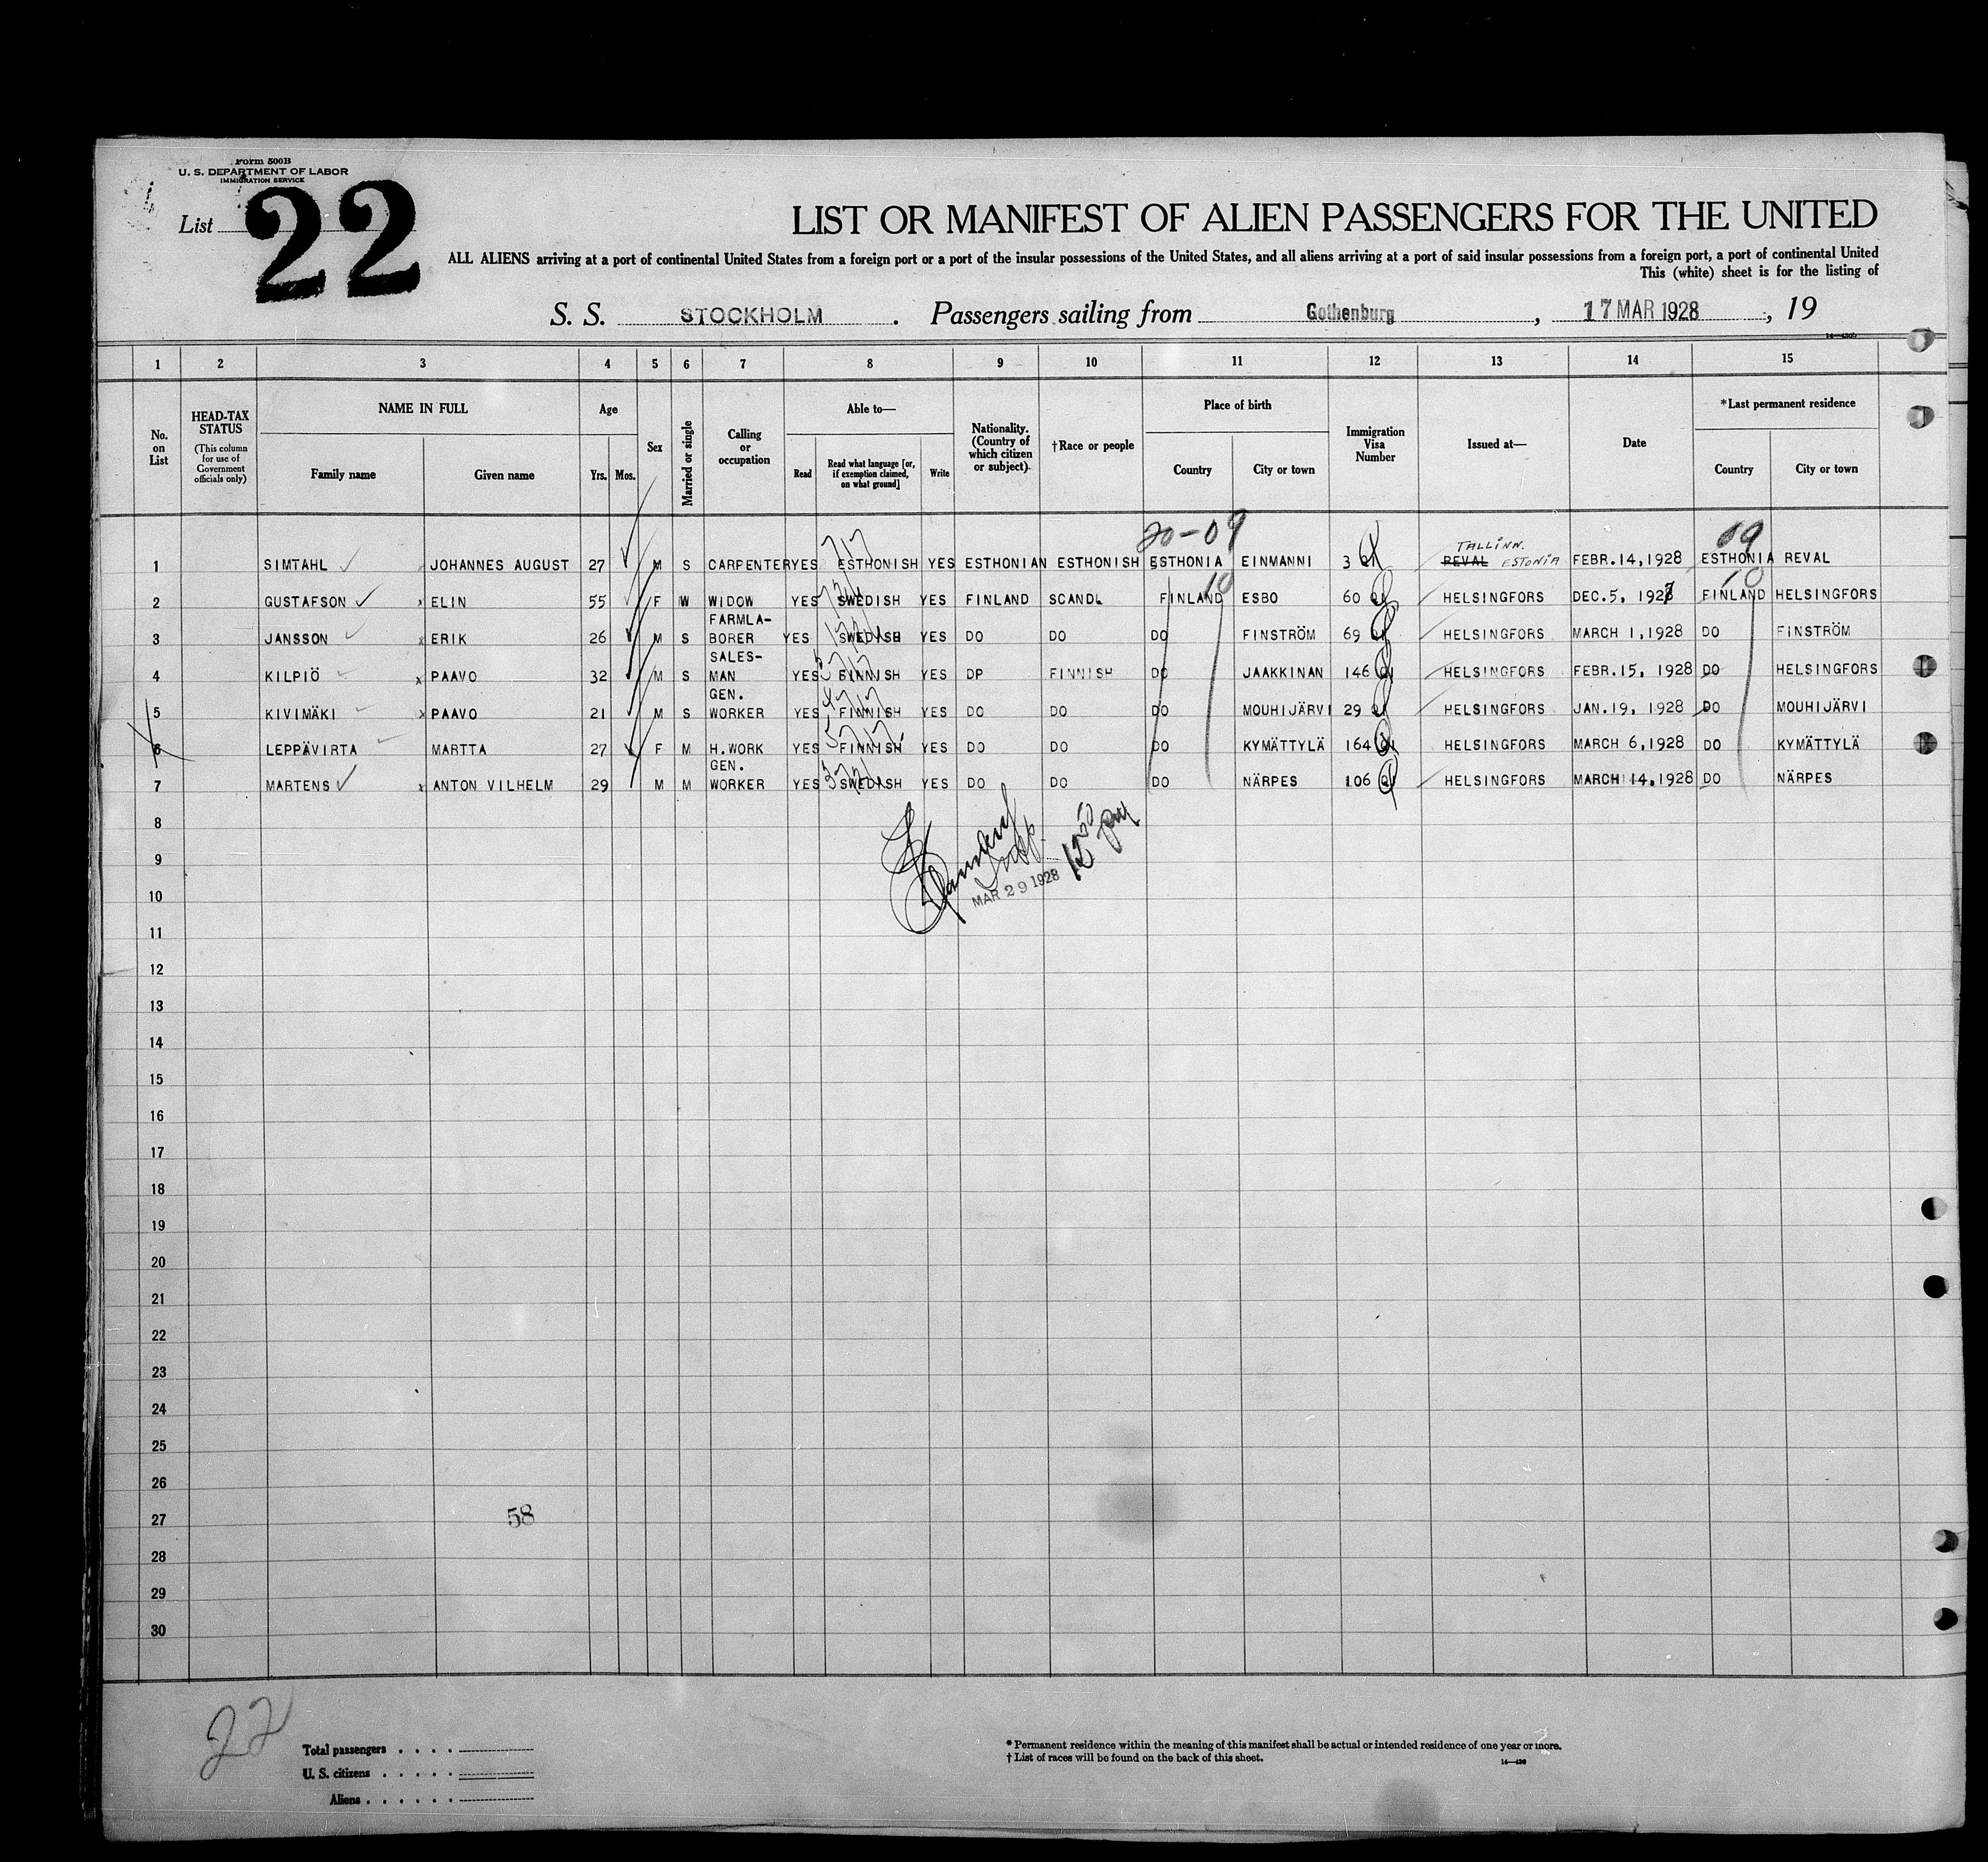 Form 500B
U. S. DEPARTMENT OF LABOR
IMMIGRATION SERVICE
List 22
LIST OR MANIFEST OF ALIEN PASSENGERS FOR THE UNITED
ALL ALIENS arriving at a port of continental United States from a foreign port or a port of the insular possessions of the United States, and all aliens arriving at a port of said insular possessions from a foreign port, a port of continental United
This (white) sheet is for the listing of
S. S. STOCKHOLM . Passengers sailing from Gothenburg , 17 MAR 1928 , 19
1 2 3 4 5 6 7 8 9 10 11 12 13 14 15
No. on List
HEAD-TAX STATUS
(This column for use of Government officials only)
NAME IN FULL
Family name Given name
Age
Yrs. Mos.
Sex
Married or single
Calling or occupation
Able to—
Read
Read what language [or, if exemption claimed, on what ground]
Write
Nationality. (Country of which citizen or subject).
†Race or people
Place of birth
Country City or town
Immigration Visa Number
Issued at—
Date
*Last permanent residence
Country City or town
20-09 09
TALLINN.
1 SIMTAHL JOHANNES AUGUST 27 M S CARPENTER YES ESTHONISH YES ESTHONIAN ESTHONISH ESTHONIA EINMANNI 3 REVAL ESTONIA FEBR.14,1928 ESTHONIA REVAL
10 10
2 GUSTAFSON ELIN 55 F W WIDOW YES SWEDISH YES FINLAND SCANDL FINLAND ESBO 60 HELSINGFORS DEC.5, 1927 FINLAND HELSINGFORS
FARMLA-
3 JANSSON ERIK 26 M S BORER YES SWEDISH YES DO DO DO FINSTRÖM 69 HELSINGFORS MARCH 1,1928 DO FINSTRÖM
SALES-
4 KILPIÖ PAAVO 32 M S MAN YES FINNISH YES DP FINNISH DO JAAKKINAN 146 HELSINGFORS FEBR.15, 1928 DO HELSINGFORS
GEN.
5 KIVIMÄKI PAAVO 21 M S WORKER YES FINNISH YES DO DO DO MOUHIJÄRVI 29 HELSINGFORS JAN.19, 1928 DO MOUHIJÄRVI
6 LEPPÄVIRTA MARTTA 27 F M H.WORK YES FINNISH YES DO DO DO KYMÄTTYLÄ 164 HELSINGFORS MARCH 6,1928 DO KYMÄTTYLÄ
GEN.
7 MARTENS ANTON VILHELM 29 M M WORKER YES SWEDISH YES DO DO DO NÄRPES 106 HELSINGFORS MARCH 14,1928 DO NÄRPES
8
9
MAR 29 1928
10
11
12
13
14
15
16
17
18
19
20
21
22
23
24
25
26
27 58
28
29
30
22
Total passengers . . . .
U. S. citizens . . . . .
Aliens . . . . . .
* Permanent residence within the meaning of this manifest shall be actual or intended residence of one year or more.
† List of races will be found on the back of this sheet.